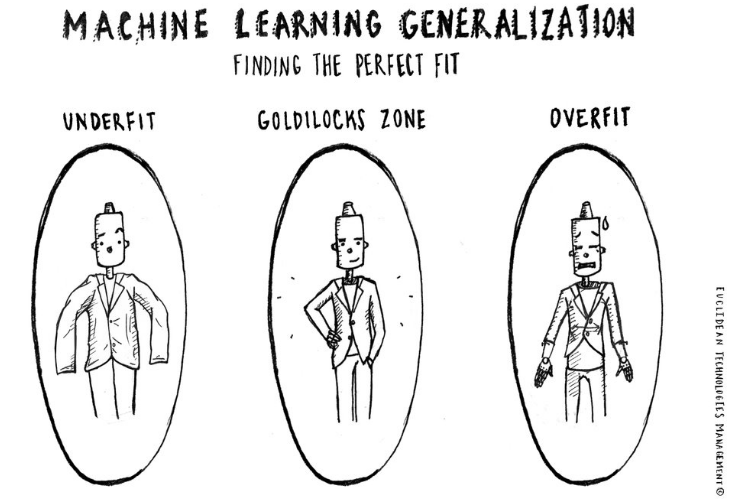 MACHINE LEARNING GENERALIZATION
FINDING THE PERFECT FIT
UNDERFIT
GOLDILOCKS ZONE
OVERFIT
EUCLIDEAN TECHNOLOGIES MANAGEMENT ©